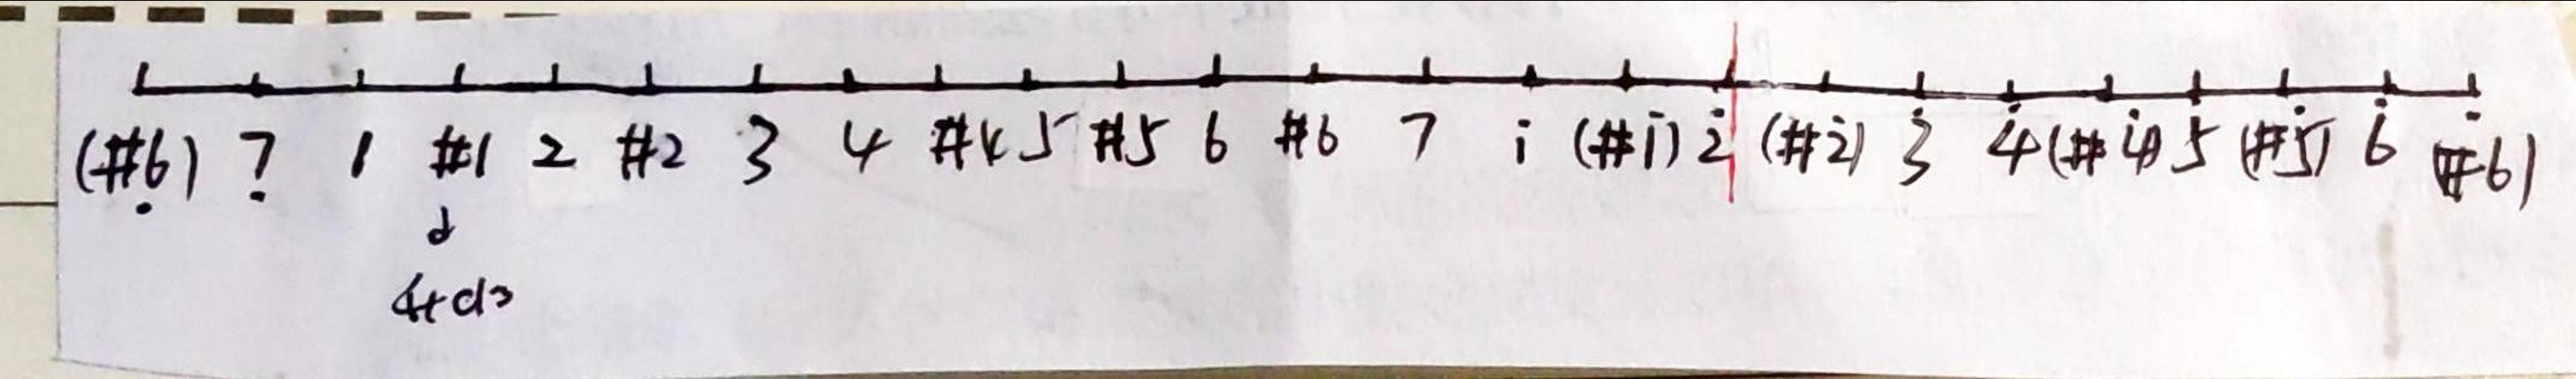 (#6̣) 7̣ 1 #1 2 #2 3 4 #4 5 #5 6 #6 7 i (#i) 2̇ (#2̇) 3̇ 4̇ (#4̇) 5̇ (#5̇) 6̇ (#6̇)
d